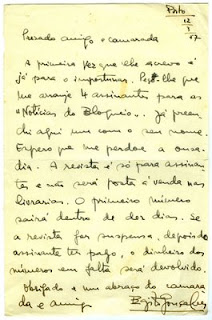 Porto
12
1
57
Prezado amigo e camarada
A primeira vez que lhe escrevo é
já para o importunar. Peço-lhe que
me arranje 4 assinantes para as
"Notícias do Bloqueio". Já preen-
chi aqui um com o seu nome.
Espero que me perdoe a ousa-
dia. A revista é só para assinan-
tes e não será posta à venda nas
livrarias. O primeiro número
sairá dentro de dez dias. Se
a revista for suspensa, depois do
assinante ter pago, o dinheiro dos
números em falta será devolvido.
Obrigado e um abraço do camara
da e amigo
Egito Gonçalves